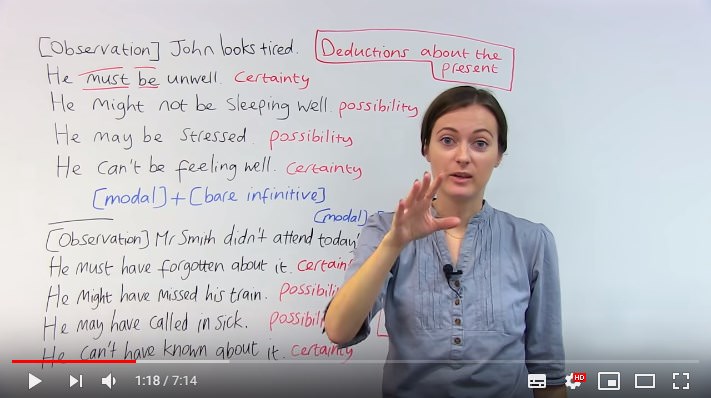 [Observation] John looks tired.
Deductions about the
present
He must be unwell. Certainty
He might not be sleeping well. possibility
He may be stressed. possibility
He can't be feeling well. certainty
[modal]+[bare infinitive]
[modal]
[Observation] Mr Smith didn't attend today'
He must have forgotten about it.
He might have missed his train.
He may have called in sick.
He can't have known about it. certainty
1:18 / 7:14
HD